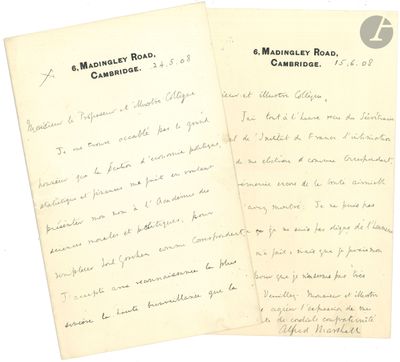 6, MADINGLEY ROAD,
CAMBRIDGE. 24.5.08
Monsieur le Professeur et illustre Collègue
Je me trouve accablé par le grand
honneur que la Section d'économie politique,
statistique et finances me fait en voulant
présenter mon nom à l'Académie des
sciences morales et politiques, pour
remplacer Lord Goschen comme Correspondant
J'accepte avec reconnaissance la plus
sincère la haute surveillance que la
6, MADINGLEY ROAD,
CAMBRIDGE. 15.6.08
et illustre Collègue,
J'ai tout à l'heure reçu du Secrétariat
de l'Institut de France l'intimation
de mon élection comme Correspondant
encore de la bonté
Je ne puis pas
que je ne suis pas digne de l'honneur
me fait, mais que je
pour que je très
Veuillez, Monsieur et illustre
agréer l'expression de mes
de cordiale confraternité
Alfred Marshall